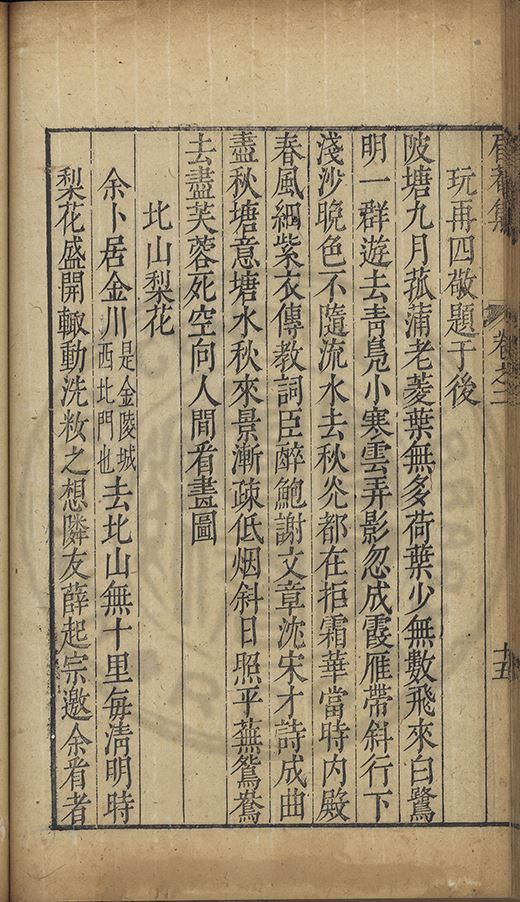 眉菴集 卷之二 十五
玩再四敬題于後
陂塘九月菰蒲老菱葉無多荷葉少無數飛來白鷺
明一群遊去青鳧小寒雲弄影忽成霞雁帶斜行下
淺沙晚色不隨流水去秋灮都在拒霜華當時内殿
春風細紫衣傳教詞臣醉鮑謝文章沈宋才詩成曲
盡秋塘意塘水秋來景漸疎低烟斜日照平蕪鴛鴦
去盡芙蓉死空向人間看畫圖
北山梨花
余卜居金川是金陵城西北門也去北山無十里每清明時
梨花盛開輙動洗粧之想隣友薛起宗邀余看者